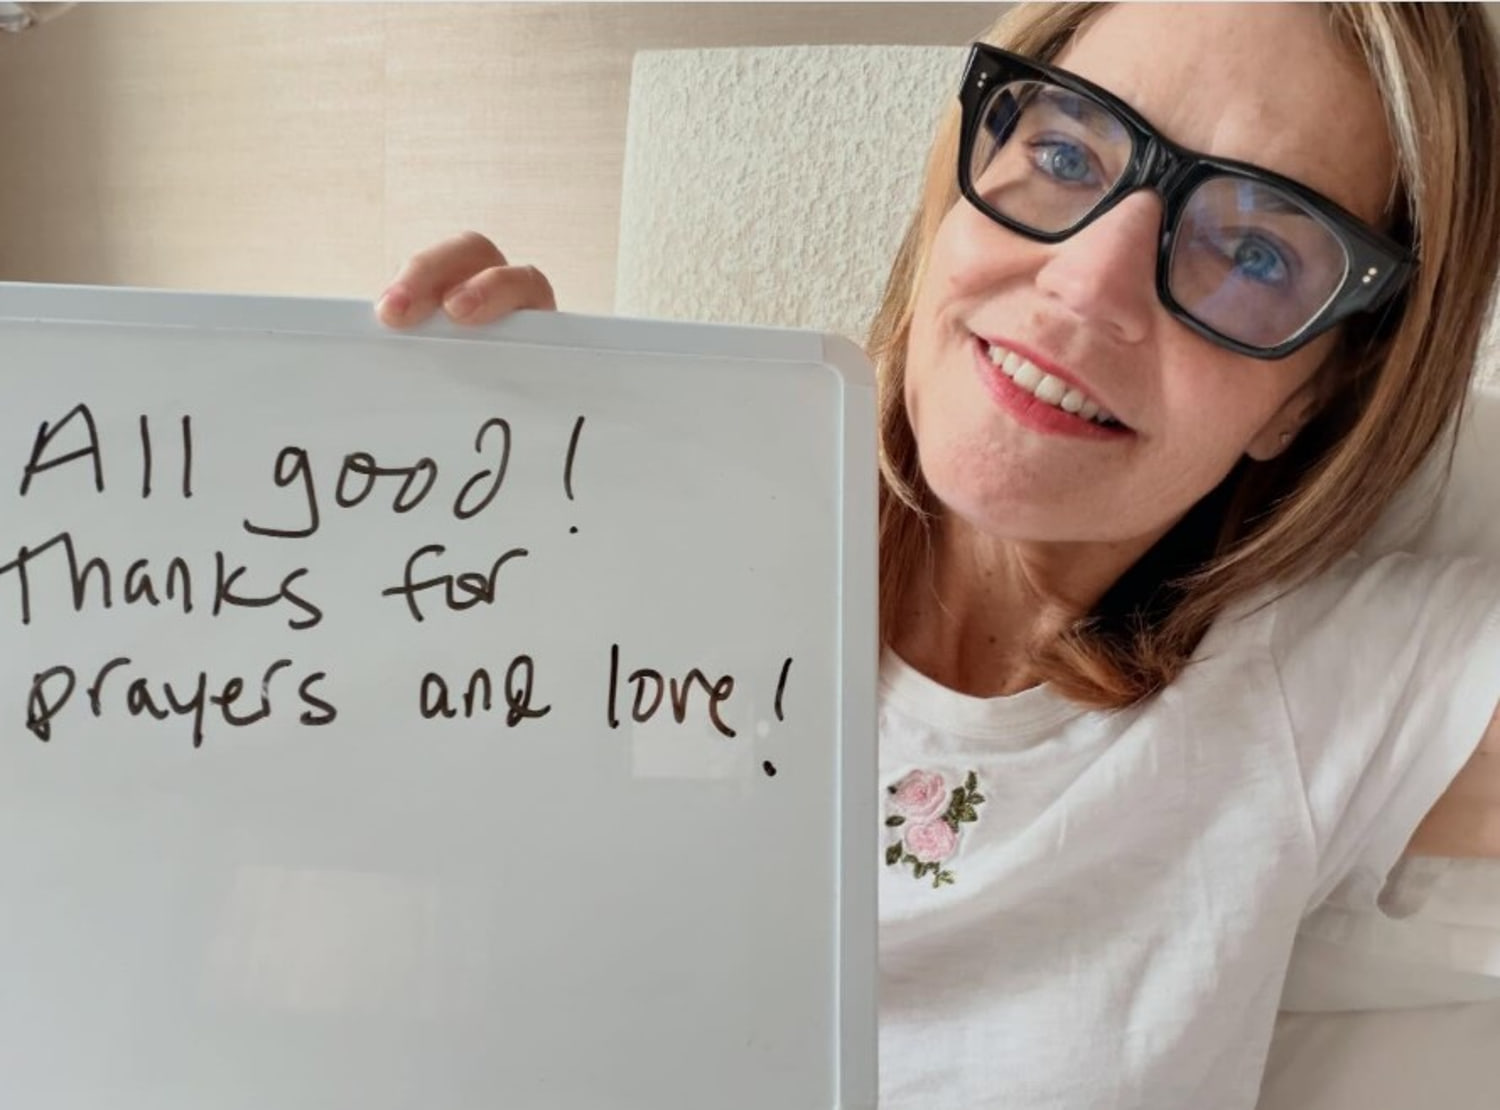 All good!
Thanks for
prayers and love!